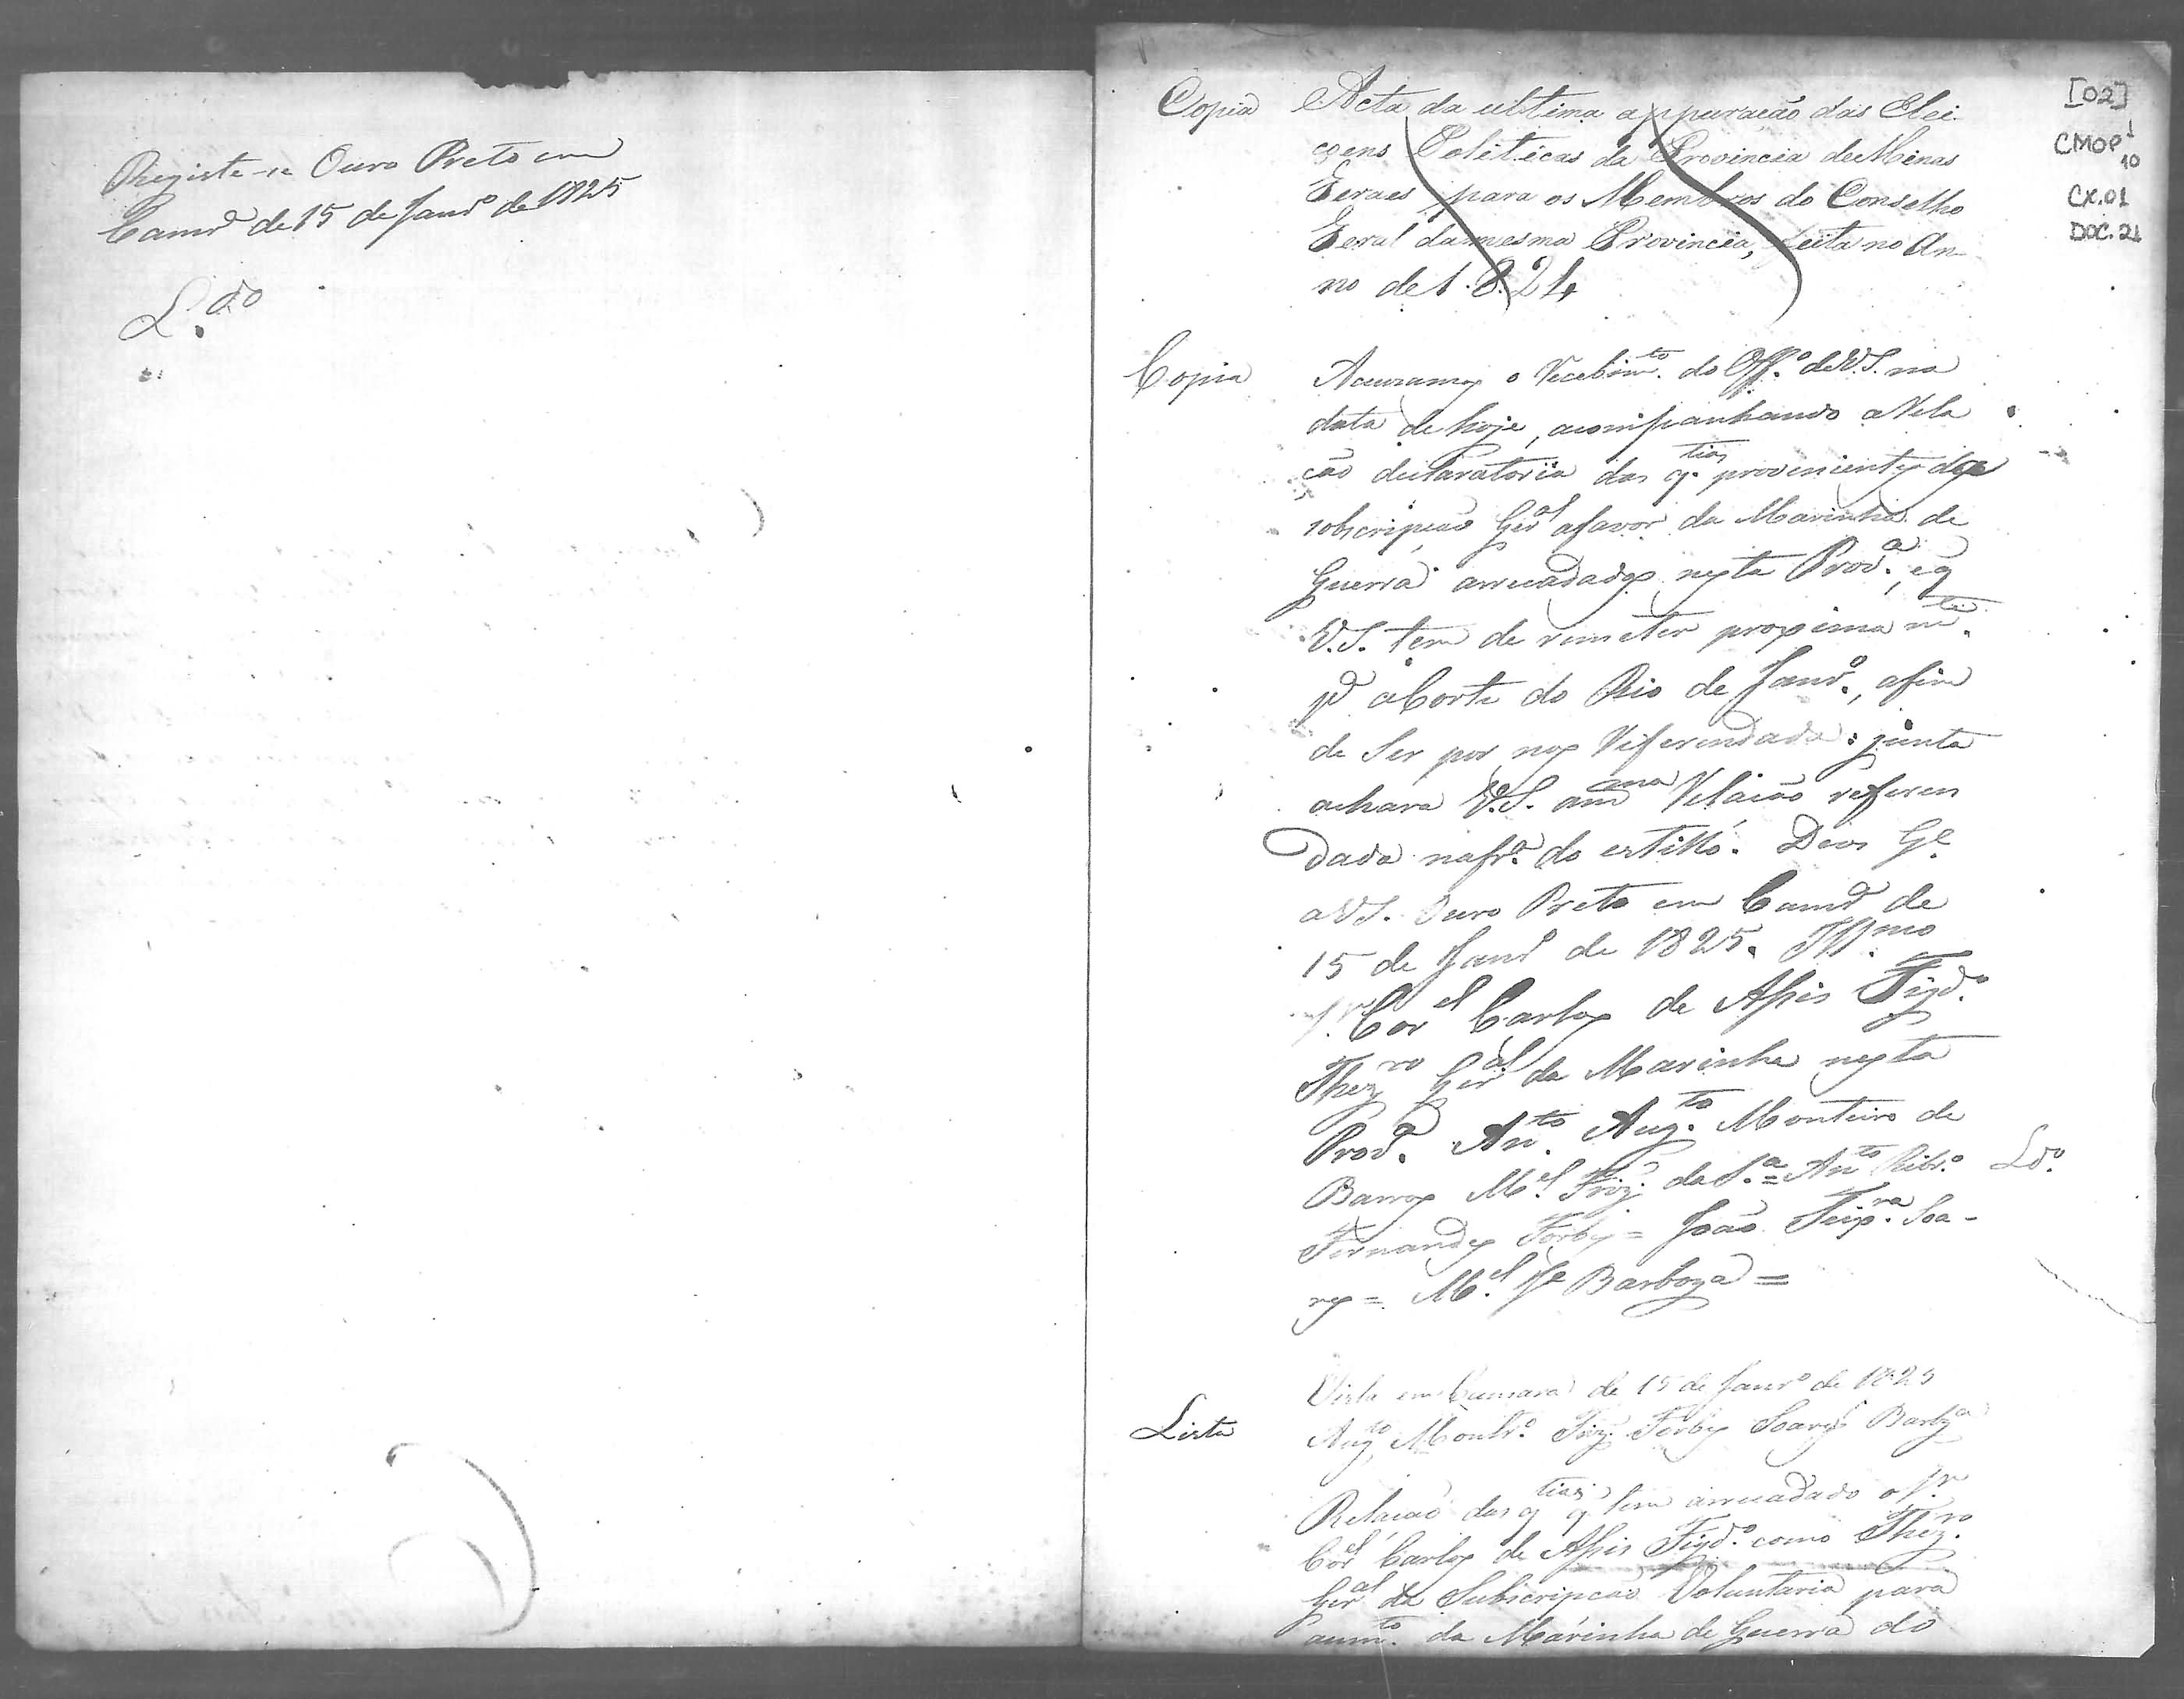 Registe-se Ouro Preto em
Camrª de 15 de Janrº de 1825
L.do
[02]
CMOP 1
10
CX.01
DOC. 21
Copia Acta da ultima appuração das Elei
coens Politicas da Provincia de Minas
Geraes para os Membros do Conselho
Geral da mesma Provincia, feita no An
no de 1.8.24
Copia Acuzamos o Recebimto. do Offº. de V.S. na
data de hoje, acompanhando a Rela
ção declaratoria das q.tias provenientes da
sobscripção Geral a favor da Marinha de
Guerra arrecadadas nesta Prova., e q
V.S. tem de remeter proxima mte.
pª a Corte do Rio de Janrº., afim
de Ser por nos Referendada: junta
achara V.S. a mma Relacão referen
dada na frª. do estillo. Deos Ge.
a V.S. Ouro Preto em Camrª de
15 de Janrº de 1825. Ill.mo
Sr. Corel Carlos de Assis Figdº.
Thezro Geral da Marinha nesta
Prova. Anto. Augto. Monteiro de
Barros Mel. Friz. da S.ª = Anto Ribrº. Ldº.
Fernandes Forbes = João Teixra. Soa-
res = Mel. Je Barboza =
Vista em Camara de 15 de Janrº de 1825
Lista Augto. Montrº. Friz. Forbes Soares Barbza
Relacão das qtias q tem arrecadado o Sr.
Corel Carlos de Assis Figdº. como Thezro.
Geral da Subscripcão Voluntaria para
aumto. da Marinha de Guerra do